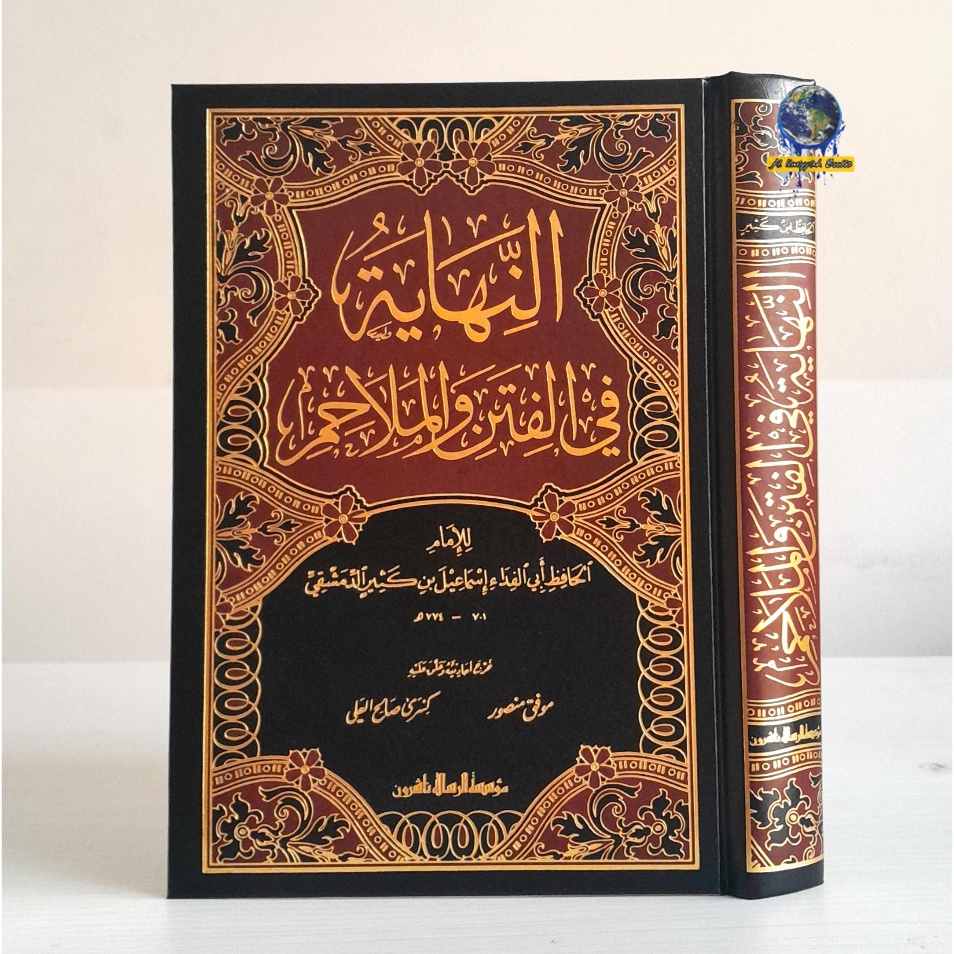 النِّهَايَةُ
في الفِتَنِ وَالمَلَاحِمِ
لِلإِمَامِ
الحَافِظِ أَبِي الفِدَاءِ إِسْمَاعِيلَ بِنِ كَثِيرِ الدِّمَشْقِيِّ
٧٠١ - ٧٧٤ هـ
خرج أحاديثه وعلق عليه
موفق منصور
كنرى صالح العلي
مؤسسة الرسالة ناشرون
الحافظ ابن كثير
النِّهَايَةُ في الفِتَنِ وَالمَلَاحِمِ
مؤسسة الرسالة ناشرون